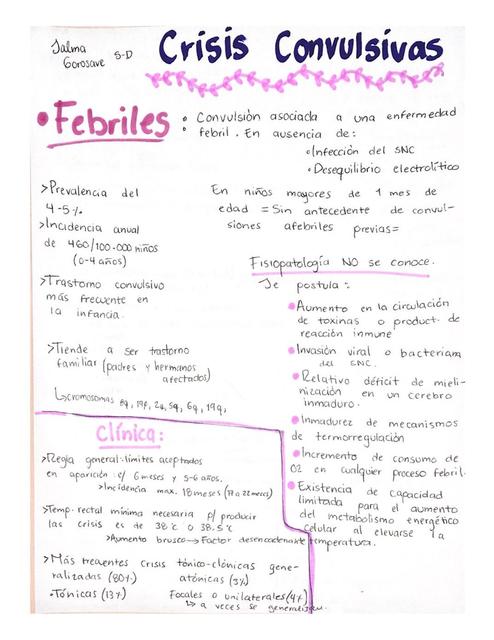 Jalma
Gorosave 5-D
Crisis Convulsivas
• Febriles
: Convulsión asociada a una enfermedad
febril. En ausencia de:
•Infección del SNC
•Desequilibrio electrolítico
En niños mayores de 1 mes de
edad = Sin antecedente de convul-
siones afebriles previas=
>Prevalencia del
4-5%
>Incidencia anual
de 460/100.000 niños
(0-4 años)
>Trastorno convulsivo
más frecuente en
la infancia.
>Tiende a ser trastorno
familiar (padres y hermanos
afectados)
↳cromosomas 8q, 19p, 2q, 5q, 6q, 19q,
Fisiopatología NO se conoce.
Se postula:
•Aumento en la circulación
de toxinas o product. de
reacción inmune
•Invasión viral o bacteriana
del SNC.
•Relativo déficit de mieli-
nización en un cerebro
inmaduro.
•Inmadurez de mecanismos
de termorregulación
•Incremento de consumo de
O2 en cualquier proceso febril.
•Existencia de capacidad
limitada para el aumento
del metabolismo energético
celular al elevarse la
temperatura.
Clínica:
>Regla general: límites aceptados
en aparición e/ 6 meses y 5-6 años.
>Incidencia max. 18 meses (17 a 22 meses)
>Temp. rectal mínima necesaria p/ producir
las crisis es de 38°C o 38.5°C
>Aumento brusco→Factor desencadenante
>Más frecuentes crisis tónico-clónicas gene-
ralizadas (80%) atónicas (3%)
•Tónicas (13%) Focales o unilaterales (4%)
↳ a veces se generalizan.